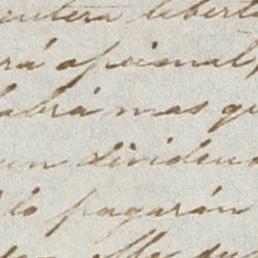 entera libert
rá opcional,
abrá mas qu
un dividen
lo pagarán